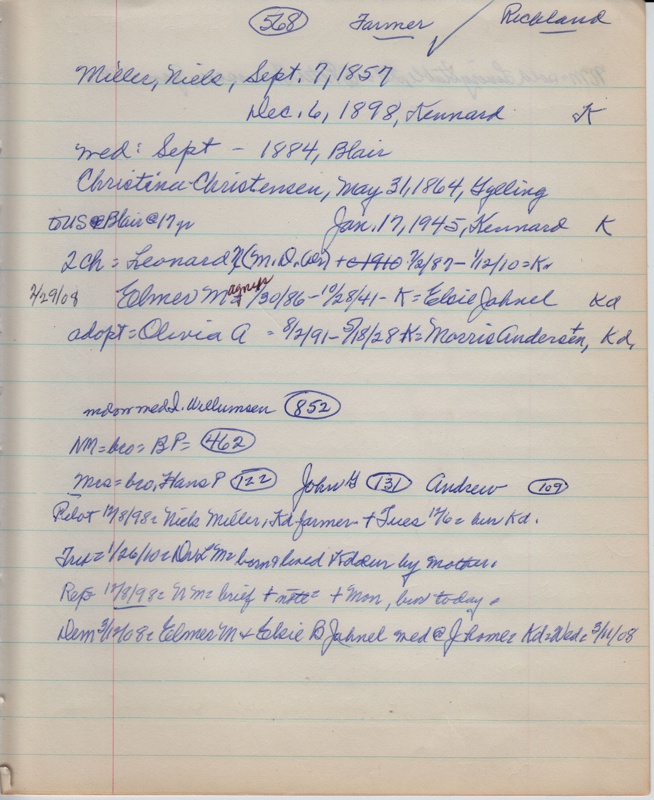 568 Farmer ✓ Richland
Miller, Niels, Sept. 7, 1857
Dec. 6, 1898, Kennard K
med: Sept - 1884, Blair
Christina Christensen, May 31, 1864, Gylling
to US @ Blair @ 17 yr Jan. 17, 1945, Kennard K
2 ch = Leonard (M.D. Wn) + c1910 7/2/87 - 1/12/10 = K
agnes
2/29/08 Elmer M = 9/30/86 - 10/28/41 - K = Elsie Jahnel Kd
adopt = Olivia A - 8/2/91 - 5/18/28 K = Morris Andersen, Kd,
widow med J. Willumsen 852
NM = bro = B P = 462
Mrs = bro, Hans P 122 John G 131 Andrew 109
Pilot 12/8/98 = Niels Miller, Kd farmer + Tues 12/6 = bur Kd.
Trib = 1/26/10 = Dr L M = born & lived Kd sur by mother.
Rep = 12/8/98 = N M = brief + note = + Mon, bur today.
Dem 3/12/08 = Elmer M & Elsie B Jahnel med @ J home = Kd = Wed = 3/11/08